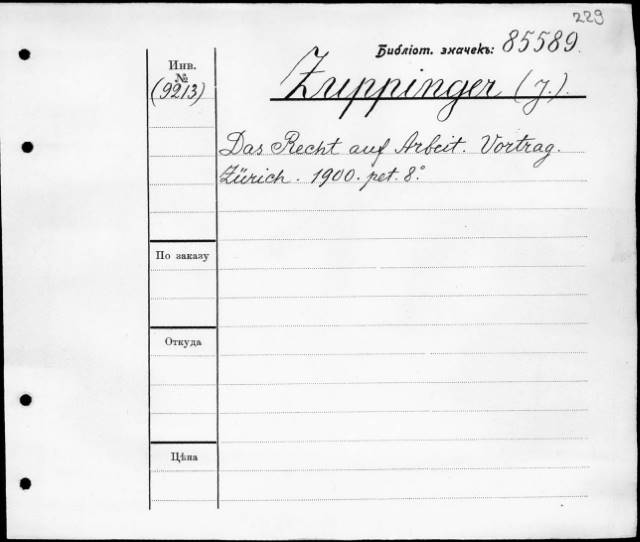 229
Библіот. значекъ: 85589.
Инв.
№
(9213)
Zuppinger (J.).
Das Recht auf Arbeit. Vortrag.
Zürich. 1900. pet. 8°.
По заказу
Откуда
Цѣна